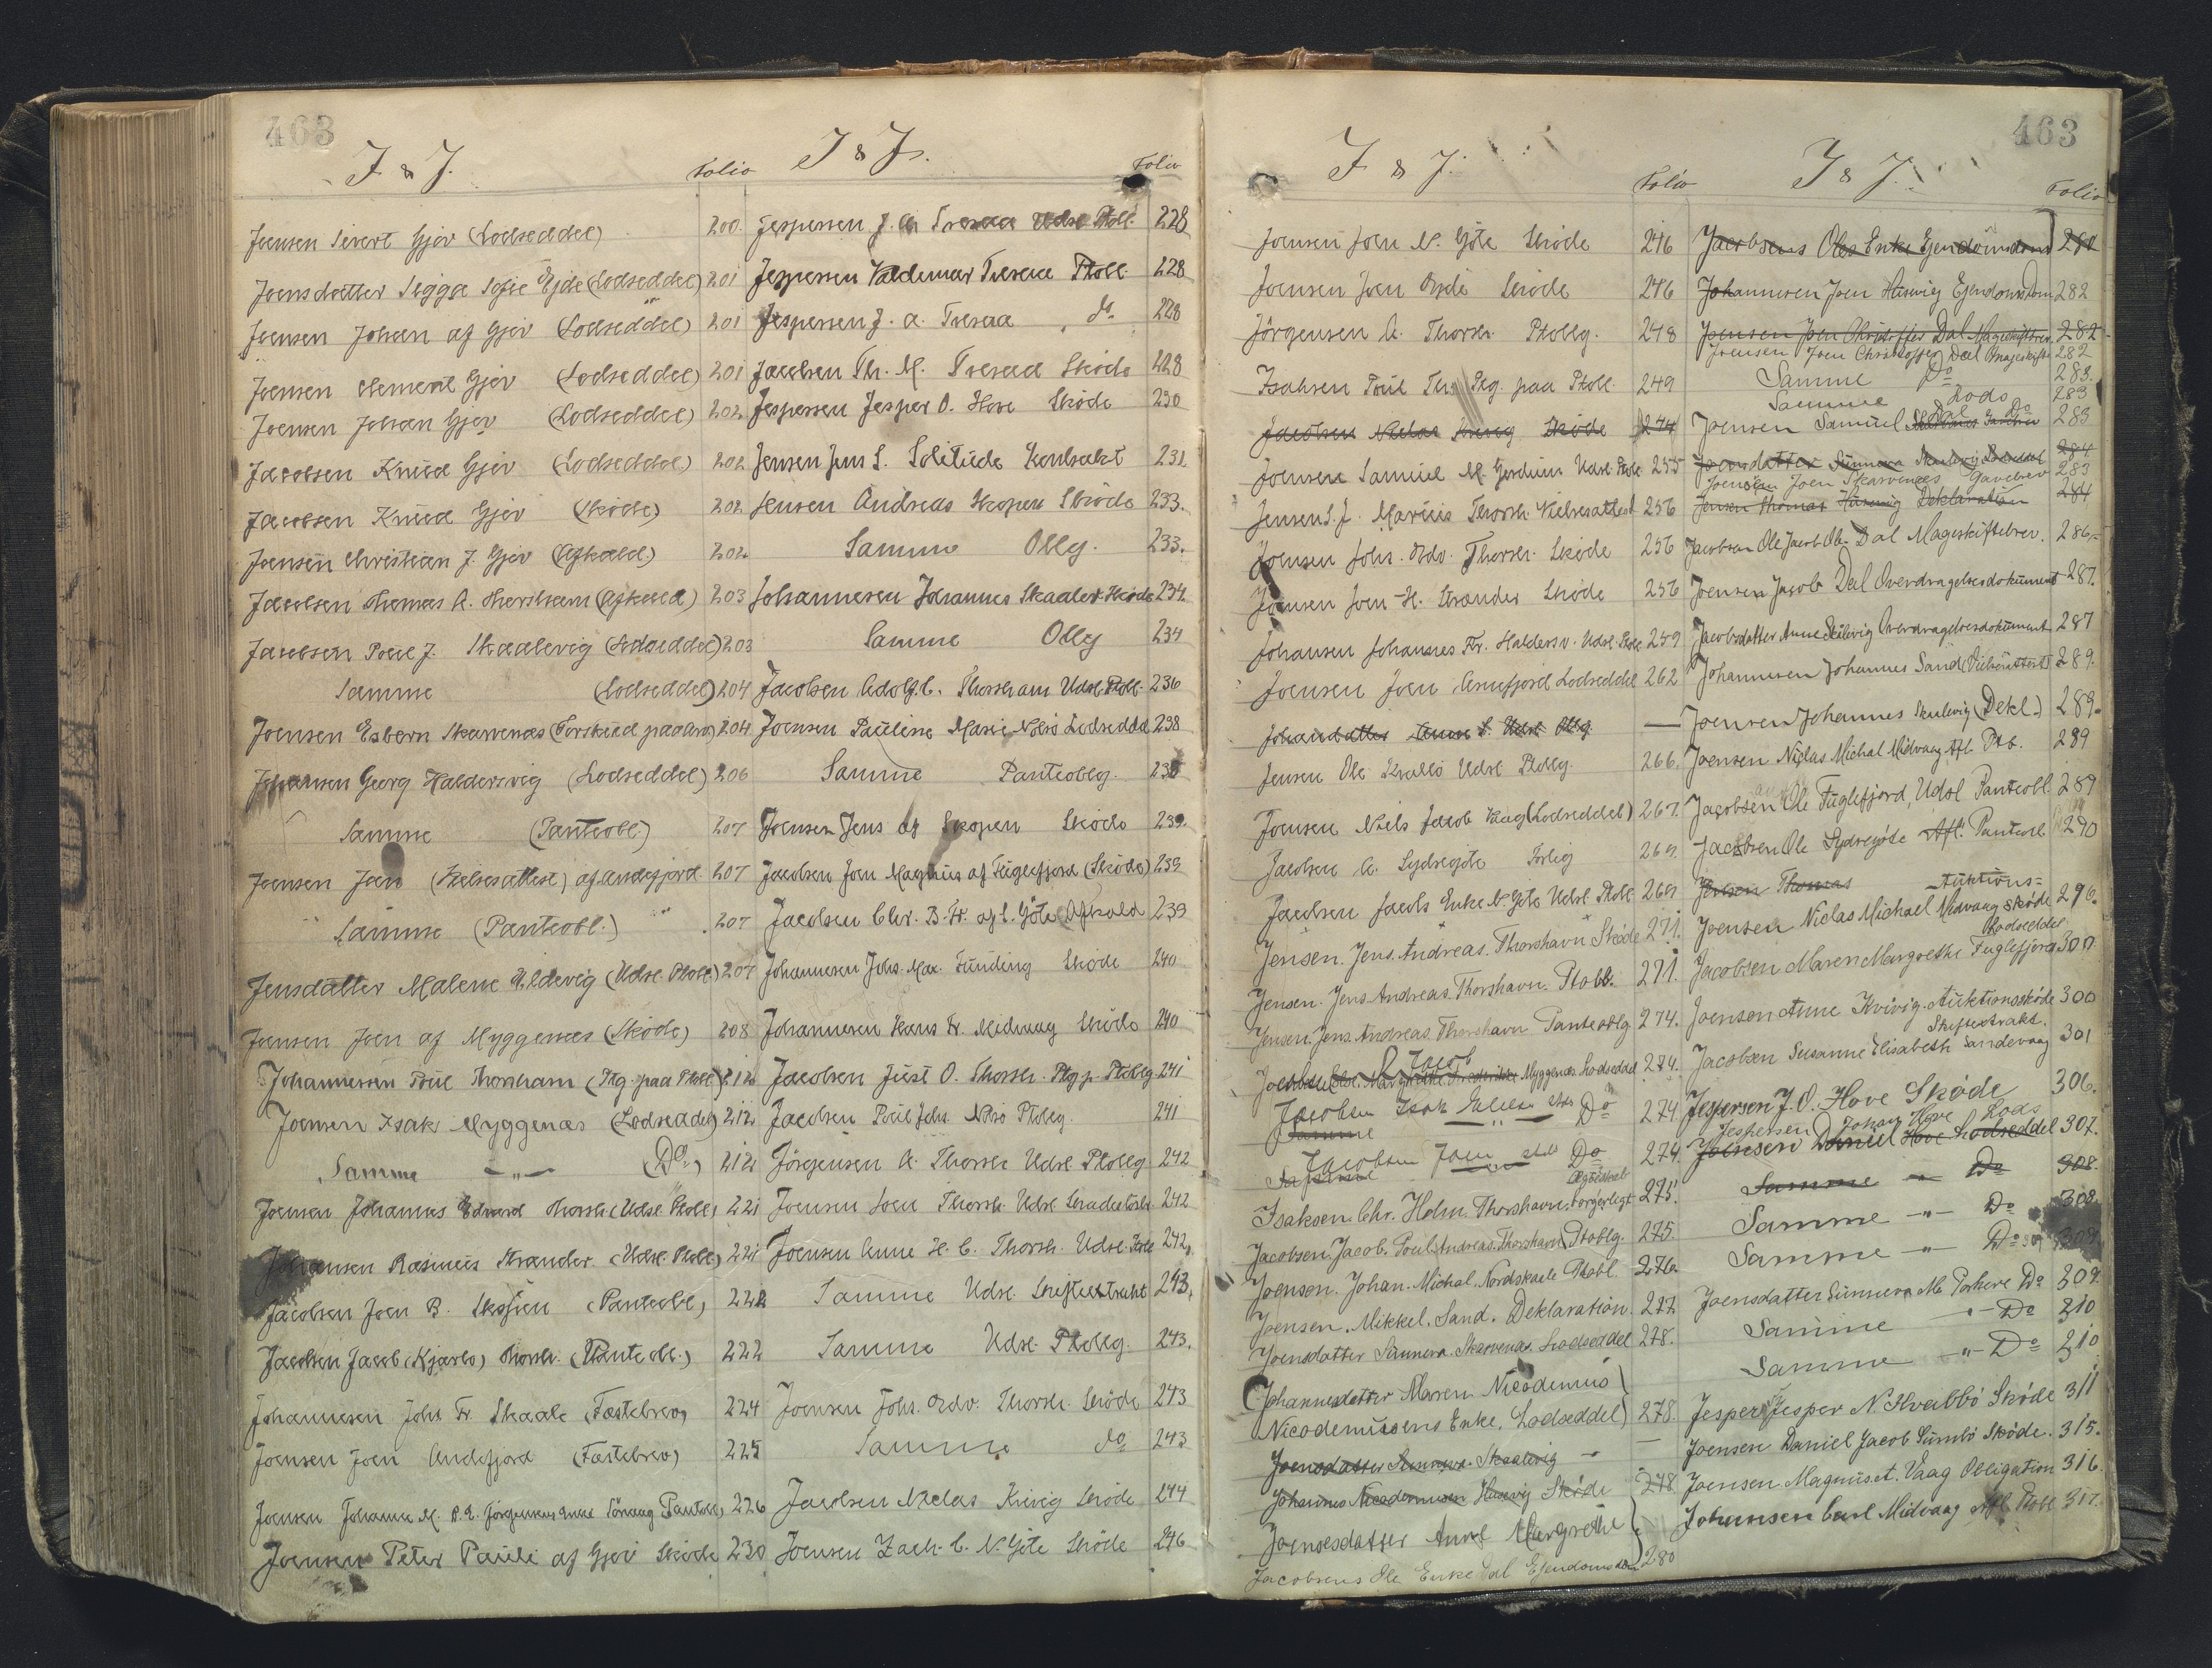 463
I & J. Folio
Joensen Sivert Gjov (Lodseddel) 200.
Joensdatter Sigga Sofie Ejde (Lodseddel) 201
Joensen Johan af Gjov (Lodseddel) 201
Joensen Clement Gjov (Lodseddel) 201
Joensen Johan Gjov (Lodseddel) 202
Jacobsen Knud Gjov (Lodseddel) 202
Jacobsen Knud Gjov (Skøde) 202
Joensen Christian J. Gjov (Afkald.) 202
Jacobsen Thomas A. Thorshavn (Afkald) 203
Jacobsen Poul J. Skaalevig (Lodseddel) 203
Samme (Lodseddel) 204
Joensen Esbern Skarvenæs (Forskud paa Arv) 204
Johansen Georg Haldersvig (Lodseddel) 206
Samme (Panteobl.) 207
Joensen Joen (Kielsesattest) af Andefjord. 207
Samme (Panteobl.) " 207
Jensdatter Malene Hildevig (Udsl. Ptobl.) 207
Joensen Joen af Myggenæs (Skøde) 208
Johannesen Poul Thorshavn (Ptg. paa Ptobl) 212
Joensen Isak Myggenæs (Lodseddel) 212
Samme —"— (Do.) 212
Joensen Johannes Edvard Thorsh. (Udsl. Ptobl.) 221
Johansen Rasmus Strander. (Udsl. Ptobl.) 221
Jacobsen Joen B. Skopen (Panteobl.) 222
Jacobsen Jacob (Kjarbo) Thorsh. (Panteobl.) 222
Johannesen Johs Fr. Skaale (Fæstebrev) 224
Joensen Joen Andefjord (Fæstebrev) 225
Joensen Johanne M. P. E. Jørgensens Enke Sörvaag Panteobl. 226
Joensen Peter Pauli af Gjov Skøde 230
I & J. Folio
Jespersen J. A. Tveraa Udsl. Ptobl. 228
Jespersen Valdemar Tveraa Ptobl. 228
Jespersen J. A. Tveraa do. 228
Jacobsen Th. M. Tveraa Skøde 228
Jespersen Jesper O. Hove Skøde 230
Jensen Jens S. Solitude Kontrakt 231
Jensen Andreas Skopen Skøde 233.
Samme Oblg. 233.
Johannesen Johannes Skaalev. Skøde 234
Samme Oblg 234
Jacobsen Adolf C. Thorshavn Udsl. Ptobl. 236
Joensen Pauline Marie Nolsø Lodseddel 238
Samme Panteoblg. 238
Joensen Jens af Skopen Skøde 239.
Jacobsen Joen Magnus af Fuglefjord (Skøde) 239
Jacobsen Chr. B. Fr. af S. Gøte (Afkald 239
Johannesen Johs. Max. Funding Skøde 240
Johannesen Hans Fr. Midvaag Skøde 240
Jacobsen Just O. Thorsh. Ptg p. Ptoblg 241
Jacobsen Poul Johs. Nolsø Ptoblg. 241
Jörgensen A. Thorsh. Udsl. Ptoblg. 242
Joensen Joen Thorsh. Udsl. 242
Joensen Anne H. C. Thorsh. Udsl. Ptobl. 242.
Samme Udsl. Skifteextrakt 243.
Samme Udsl. Ptoblg. 243.
Joensen Johs. Edv. Thorsh. Skøde 243
Samme do 243
Jacobsen Niclas Kvivig Skøde 244
Joensen Zach. C. N. Gøte Skøde 246
I & J. Folio
Joensen Joen N. Gøte Skøde 246
Joensen Joen Skøde 246
Jörgensen A. Thorsh. Ptoblg. 248
Isaksen Poul Th. Ptg. paa Ptobl. 249
Jacobsen Niclas Kvivig Skøde 274
Joensen Samuel M. Udsl. Ptobl. 255
Jensen S. J. Marius Thorsh. Vielsesattest 256
Joensen Johs. Edv. Thorsh. Skøde 256
Joensen Joen H. Strander Skøde 256
Johansen Johannes Fr. Haldersv. Udsl. Ptobl. 259
Joensen Joen Arnefjord Lodseddel 262
Johansdatter Anne S. Udsl. Oblg. —
Jensen Ole Kvalbø Udsl. Ptoblg. 266.
Joensen Niels Jacob Vaag (Lodseddel) 267.
Jacobsen A. Sydregøte Forlig 269.
Jacobsen Jacobs Enke N. Gøte Udsl. Ptobl. 269.
Jensen. Jens. Andreas. Thorshavn Skøde 271.
Jensen. Jens Andreas. Thorshavn. Ptobl. 271.
Jensen. Jens. Andreas. Thorshavn Panteoblg. 274.
Jacob
Margrethe Frederikke Myggenæs Lodseddel 274.
Jacobsen Isak Do 274.
Samme
Jacobsen Joen Do 274.
Isaksen. Chr. Holm. Thorshavn. borgerligt 275.
Jacobsen. Jacob. Poul Andreas. Thorshavn Ptoblg. 275.
Joensen. Johan. Michal. Nordskaale Ptobl. 276.
Joensen. Mikkel. Sand. Deklaration. 277
Joensdatter Sunneva. Skarvenæs. Lodseddel 278.
Johannesdatter Maren Nicodemus
Nicodemusens Enke. Lodseddel) 278.
Joensdatter Skaalevig — —
Johannes Nicodemusen Husevig Skøde 278
Joensesdatter Anne Margrethe
Jacobsens Ole Enke Dal Ejendomsdom 280
463
I & J. Folio
Jacobsens Oles Enke Ejendomsdom 280
Johannesen Joen Husevig Ejendomsdom 282
Joensen Joen Christoffer Dal Mageskiftebrev 282
Joensen Joen Christoffer Dal Mageskifte 282
Samme Do 283.
Samme Lods 283
Dal Do
Joensen Samuel 283
Joensdatter Sunneva Skaalevig Lodseddel 284
Joensen Joen Skarvenæs Gavebrev 283
Jensen Thomas Husevig Deklaration 284
Jacobsen Ole Jacob Ole Dal Mageskiftebrev. 286.
Joensen Jacob Dal Overdragelsesdokument 287.
Jacobsdatter Anne Skaalevig Overdragelsesdokument 287
Johannesen Johannes Sand 289.
Joensen Johannes Skaalevig (Dekl.) 289.
Joensen Niclas Michal Midvaag Afl. Ptb. 289
Jacobsen Ole Fuglefjord, Udsl. Panteobl. 289
Jacobsen Ole Sydregøte Afl. Panteobl. 290
Jensen Thomas Auktions=
Joensen Niclas Michael Midvaag skøde 296.
Lodseddel
Jacobsen Maren Margrethe Fuglefjord 300.
Joensen Anne Kvivig. Auktionsskøde 300
Skifteextrakt.
Jacobsen Susanne Elisabeth Sandevaag 301
Jespersen J. O. Hove Skøde 306.
Jespersen Johan Hove Lods
Joensen Daniel Hove Lodseddel 307.
Samme —"— Do 308.
Samme —"— Do 308.
Samme —"— Do 309
Joensdatter Sunneva M. Porkere Do 309.
Samme —"— Do 310
Samme —"— Do 310
Jesper Jesper N. Hvalbø Skøde 311
Joensen Daniel Jacob Sumbø Skøde. 315.
Joensen. Magnus. A. Vaag Obligation 316.
Johansen Carl Midvaag Afl. Ptobl 317.